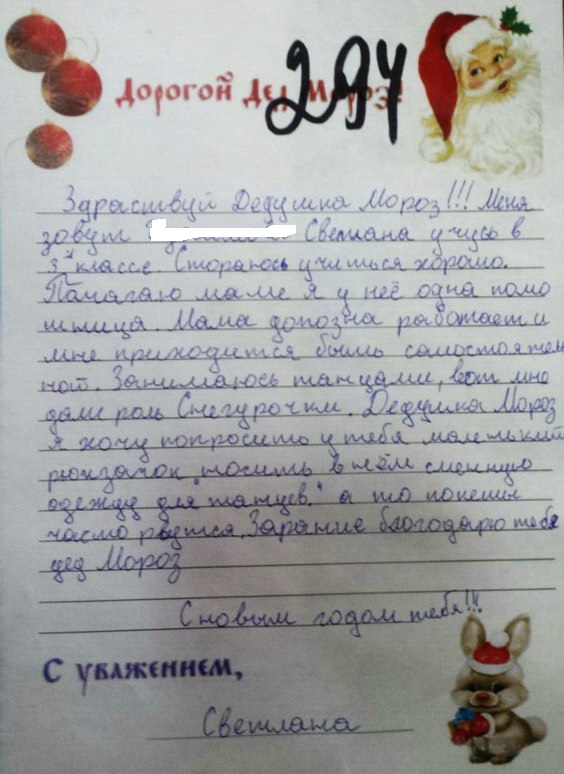 Дорогой Дед Мороз!
294
Здраствуй Дедушка Мороз!!! Меня
зовут Светлана учусь в
3 классе. Стораюсь учиться хорошо.
Памагаю маме я у неё одна помо
шница. Мама допозна работает и
мне приходится быть самостоятен
ной. Занимаюсь танцами, вот мне
дали роль Снегурочки. Дедушка Мороз
я хочу попросить у тебя маленький
рюкзачок "носить в нём сменную
одежду для танцев." а то покеты
часто рвутся. Зарание благодарю тебя
дед Мороз
С новым годом тебя!!!
С уважением,
Светлана